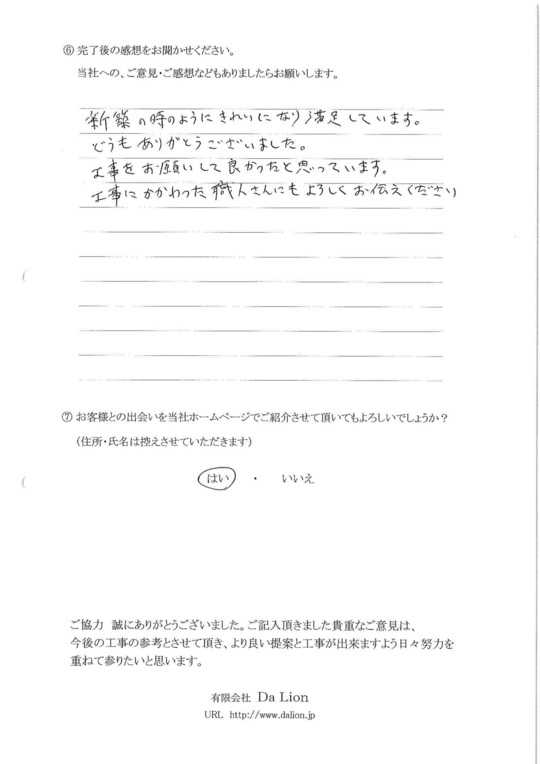 ⑥ 完了後の感想をお聞かせください。
当社への、ご意見・ご感想などもありましたらお願いします。
新築の時のようにきれいになり満足しています。
どうもありがとうございました。
工事をお願いして良かったと思っています。
工事にかかわった職人さんにもよろしくお伝えください
⑦ お客様との出会いを当社ホームページでご紹介させて頂いてもよろしいでしょうか？
（住所・氏名は控えさせていただきます）
はい ・ いいえ
ご協力 誠にありがとうございました。ご記入頂きました貴重なご意見は、
今後の工事の参考とさせて頂き、より良い提案と工事が出来ますよう日々努力を
重ねて参りたいと思います。
有限会社 Da Lion
URL http://www.dalion.jp